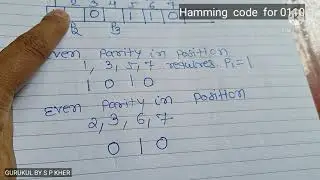 Hamming code for 0110
2 3 4 5 6 7
0 1 1 0
P2 P3
Even Parity in Position
1, 3, 5, 7 requires P1 = 1
1 0 1 0
Even Parity in Position
2, 3, 6, 7
0 1 0
GURUKUL BY S P KHER